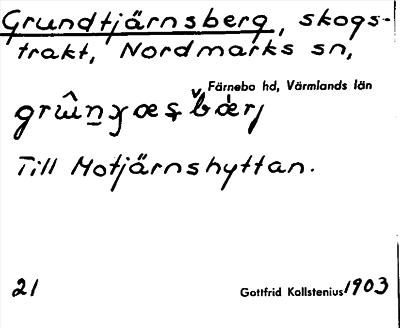 Grundtjärnsberg, skogs-
trakt, Nordmarks sn,
Färnebo hd, Värmlands län
Till Motjärnshyttan.
21 Gottfrid Kallstenius 1903